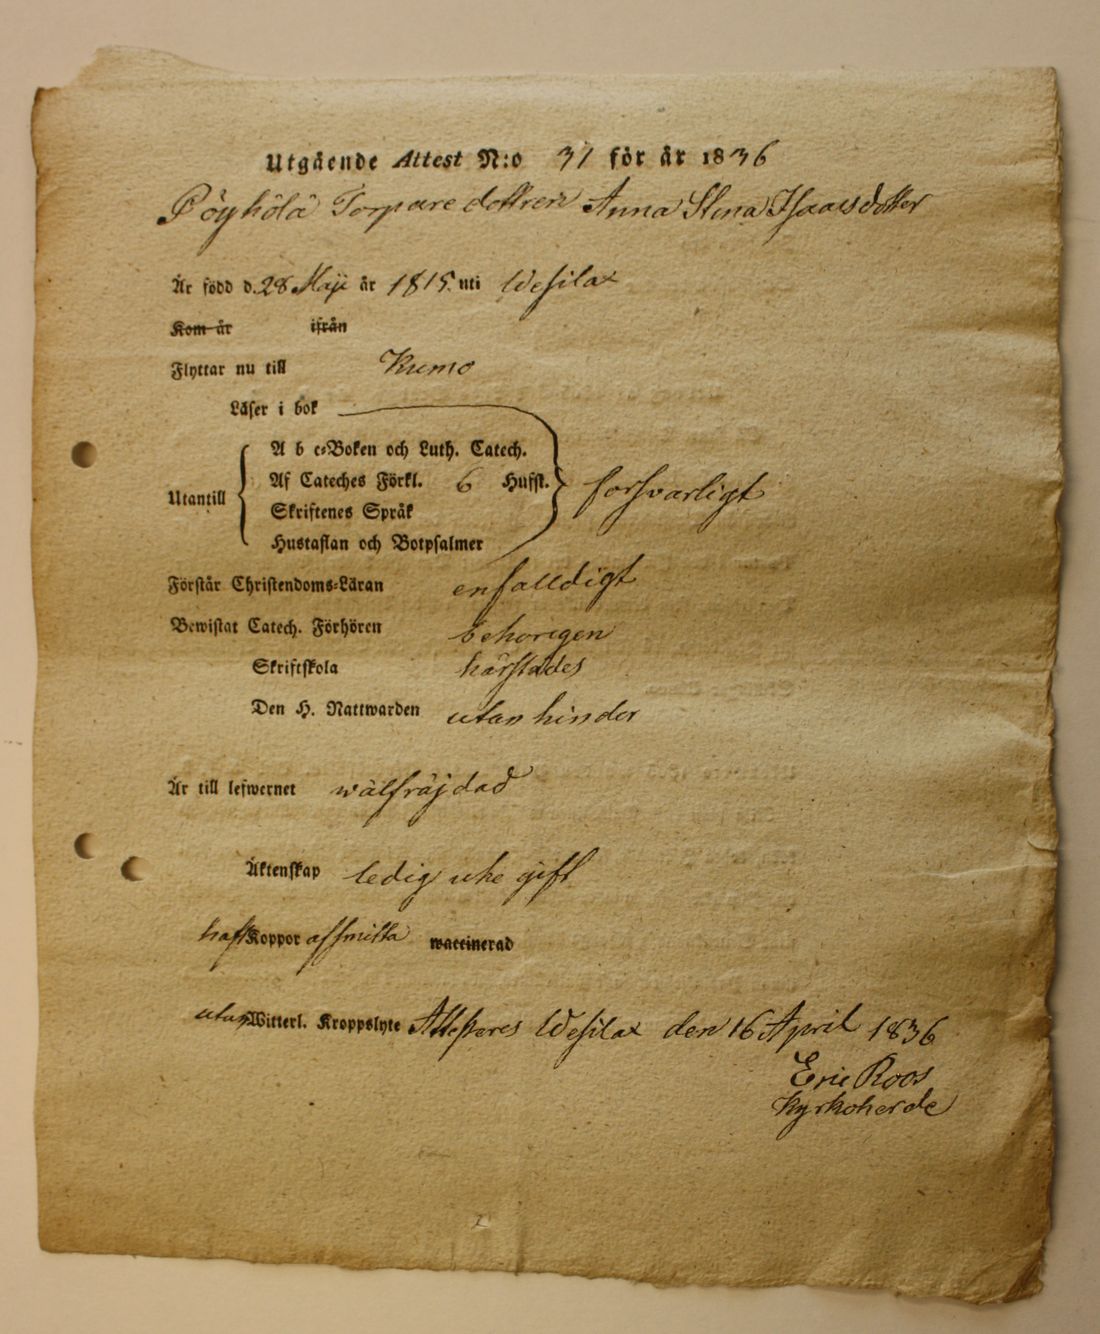 Utgående Attest N:o 31 för år 1836
Pöyhölä Torparedottren Anna Stina Isaacsdotter
Är född d. 28 Maji år 1815. uti Wesilax
Kom år ifrån
Flyttar nu till Kumo
Läser i bok
A b c-Boken och Luth. Catech.
Utantill Af Cateches Förkl. 6 Hufst. forsvarligt
Skriftenes Språk
Hustaflan och Botpsalmer
Förstår Christendoms-Läran enfalldigt
Bewistat Catech. Förhören behörigen
Skriftskola härstädes
Den H. Nattwarden utan hinder
Är till lefwernet wälfräjdad
Äktenskap ledig uke gift
haft Koppor af Smitta waccinerad
utan Witterl. Kroppslyte Attesteres Wesilax den 16 April 1836
Eric Roos
Kyrkoherde